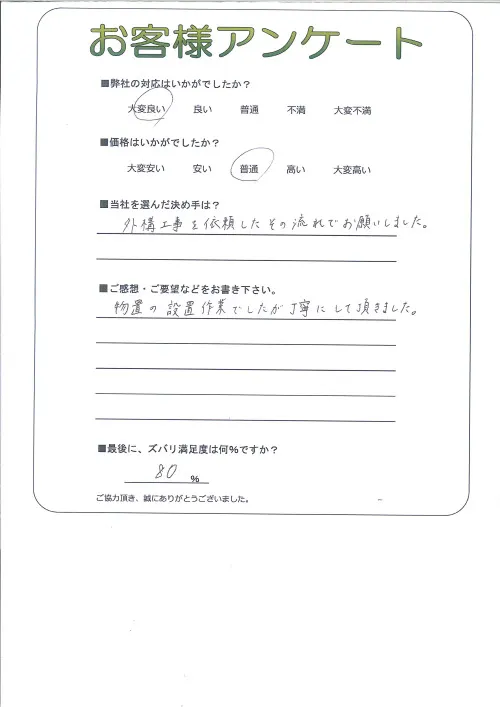 お客様アンケート
■弊社の対応はいかがでしたか？
大変良い 良い 普通 不満 大変不満
■価格はいかがでしたか？
大変安い 安い 普通 高い 大変高い
■当社を選んだ決め手は？
外構工事を依頼したその流れでお願いしました。
■ご感想・ご要望などをお書き下さい。
物置の設置作業でしたが丁寧にして頂きました。
■最後に、ズバリ満足度は何%ですか？
80 %
ご協力頂き、誠にありがとうございました。